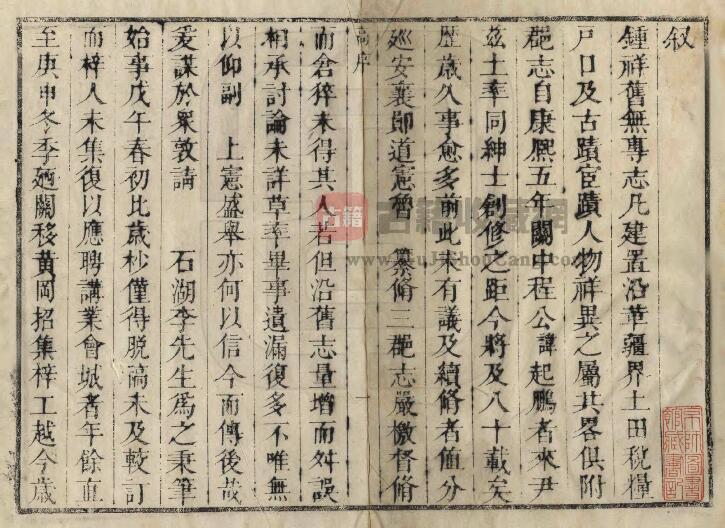 叙
鍾祥舊無專志凡建置沿革疆界土田稅糧
戸口及古蹟宦蹟人物祥異之屬其畧俱附
郡志自康熙五年關中程公諱起鵬者來尹
兹土率同紳士創修之距今將及八十載矣
歷歳久事愈多前此未有議及續脩者値分
廵安襄鄖道憲魯 纂脩三郡志嚴檄督脩
高序
一
而倉猝未得其人若但沿舊志量增而舛誤
相承討論未詳草率畢事遺漏復多不唯無
以仰副 上憲盛舉亦何以信今而傳後哉
爰謀於衆敦請 石湖李先生爲之秉筆
始事戊午春初比歳杪僅得脱稿未及較訂
而梓人未集復以應聘講業會城者年餘直
至庚申冬季廼關移黃岡招集梓工越今歳
古籍 古籍收藏網
www.GuJiShouCang.com